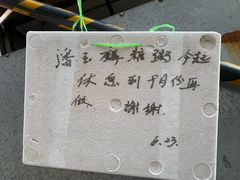 潘玉 雄粥今起
休息到十月份再
做 谢谢
6.23.